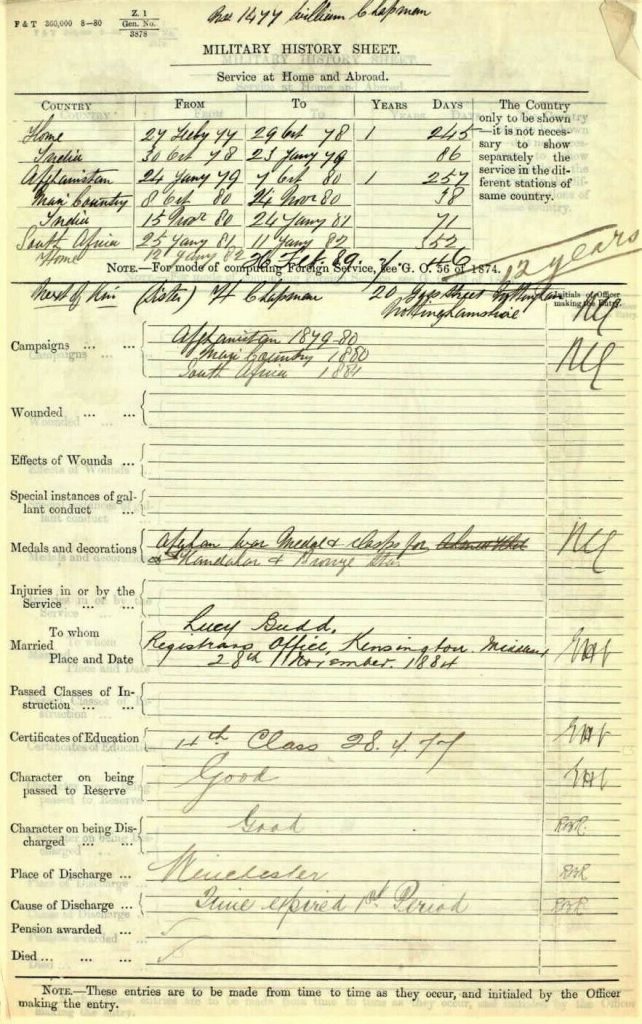 F & T 360,000 8—80
Z. 1
Gen. No.
3878
1477 William Chapman
MILITARY HISTORY SHEET.
Service at Home and Abroad.
COUNTRY FROM TO YEARS DAYS
The Country only to be shown
—it is not necessary to show
separately the
service in the different stations of
same country.
Home 27 Feby 77 29 Oct 78 1 245
India 30 Oct 78 23 Jany 79 86
Afghanistan 24 Jany 79 7 Oct 80 1 257
Mari Country 8 Oct 80 14 Novr 80 38
India 15 Novr 80 24 Jany 81 71
South Africa 25 Jany 81 11 Jany 82 352
Home 12 Jany 82 26 Feb. 89 7 46
12 years
NOTE.—For mode of computing Foreign Service, see G. O. 56 of 1874.
Next of Kin (Sister) H Chapman 20 Street
Nottinghamshire
Initials of Officer
making the Entry.
Campaigns ... ...
Afghanistan 1879-80
Mari Country 1880
South Africa 1881
Wounded ... ...
Effects of Wounds ...
Special instances of gallant conduct ...
Medals and decorations
Afghan War Medal & clasps for
Kandahar & Bronze Star
Injuries in or by the
Service ... ...
To whom
Married
Place and Date
Lucy Budd,
Registrars Office, Kensington.
28th November. 1884
Passed Classes of Instruction ... ...
Certificates of Education
4th Class 28.4.77
Character on being
passed to Reserve
Good
Character on being Discharged ... ...
Good
Place of Discharge ...
Winchester
Cause of Discharge ...
Time expired 1st Period
Pension awarded ...
Died ... ...
NOTE.—These entries are to be made from time to time as they occur, and initialed by the Officer
making the entry.